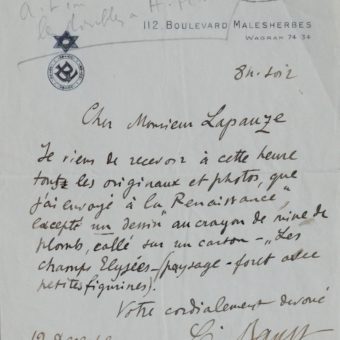 112. BOULEVARD MALESHERBES
WAGRAM 74 34
8h. soir
Cher Monsieur Lapauze
Je viens de recevoir à cette heure
tous les originaux et photos, que
j'ai envoyé à la "Renaissance",
excepté un dessin au crayon de mine de
plomb, collé sur un carton - "Les
champs Elysées - (paysage - foret avec
petites figurines).
Votre cordialement devoué